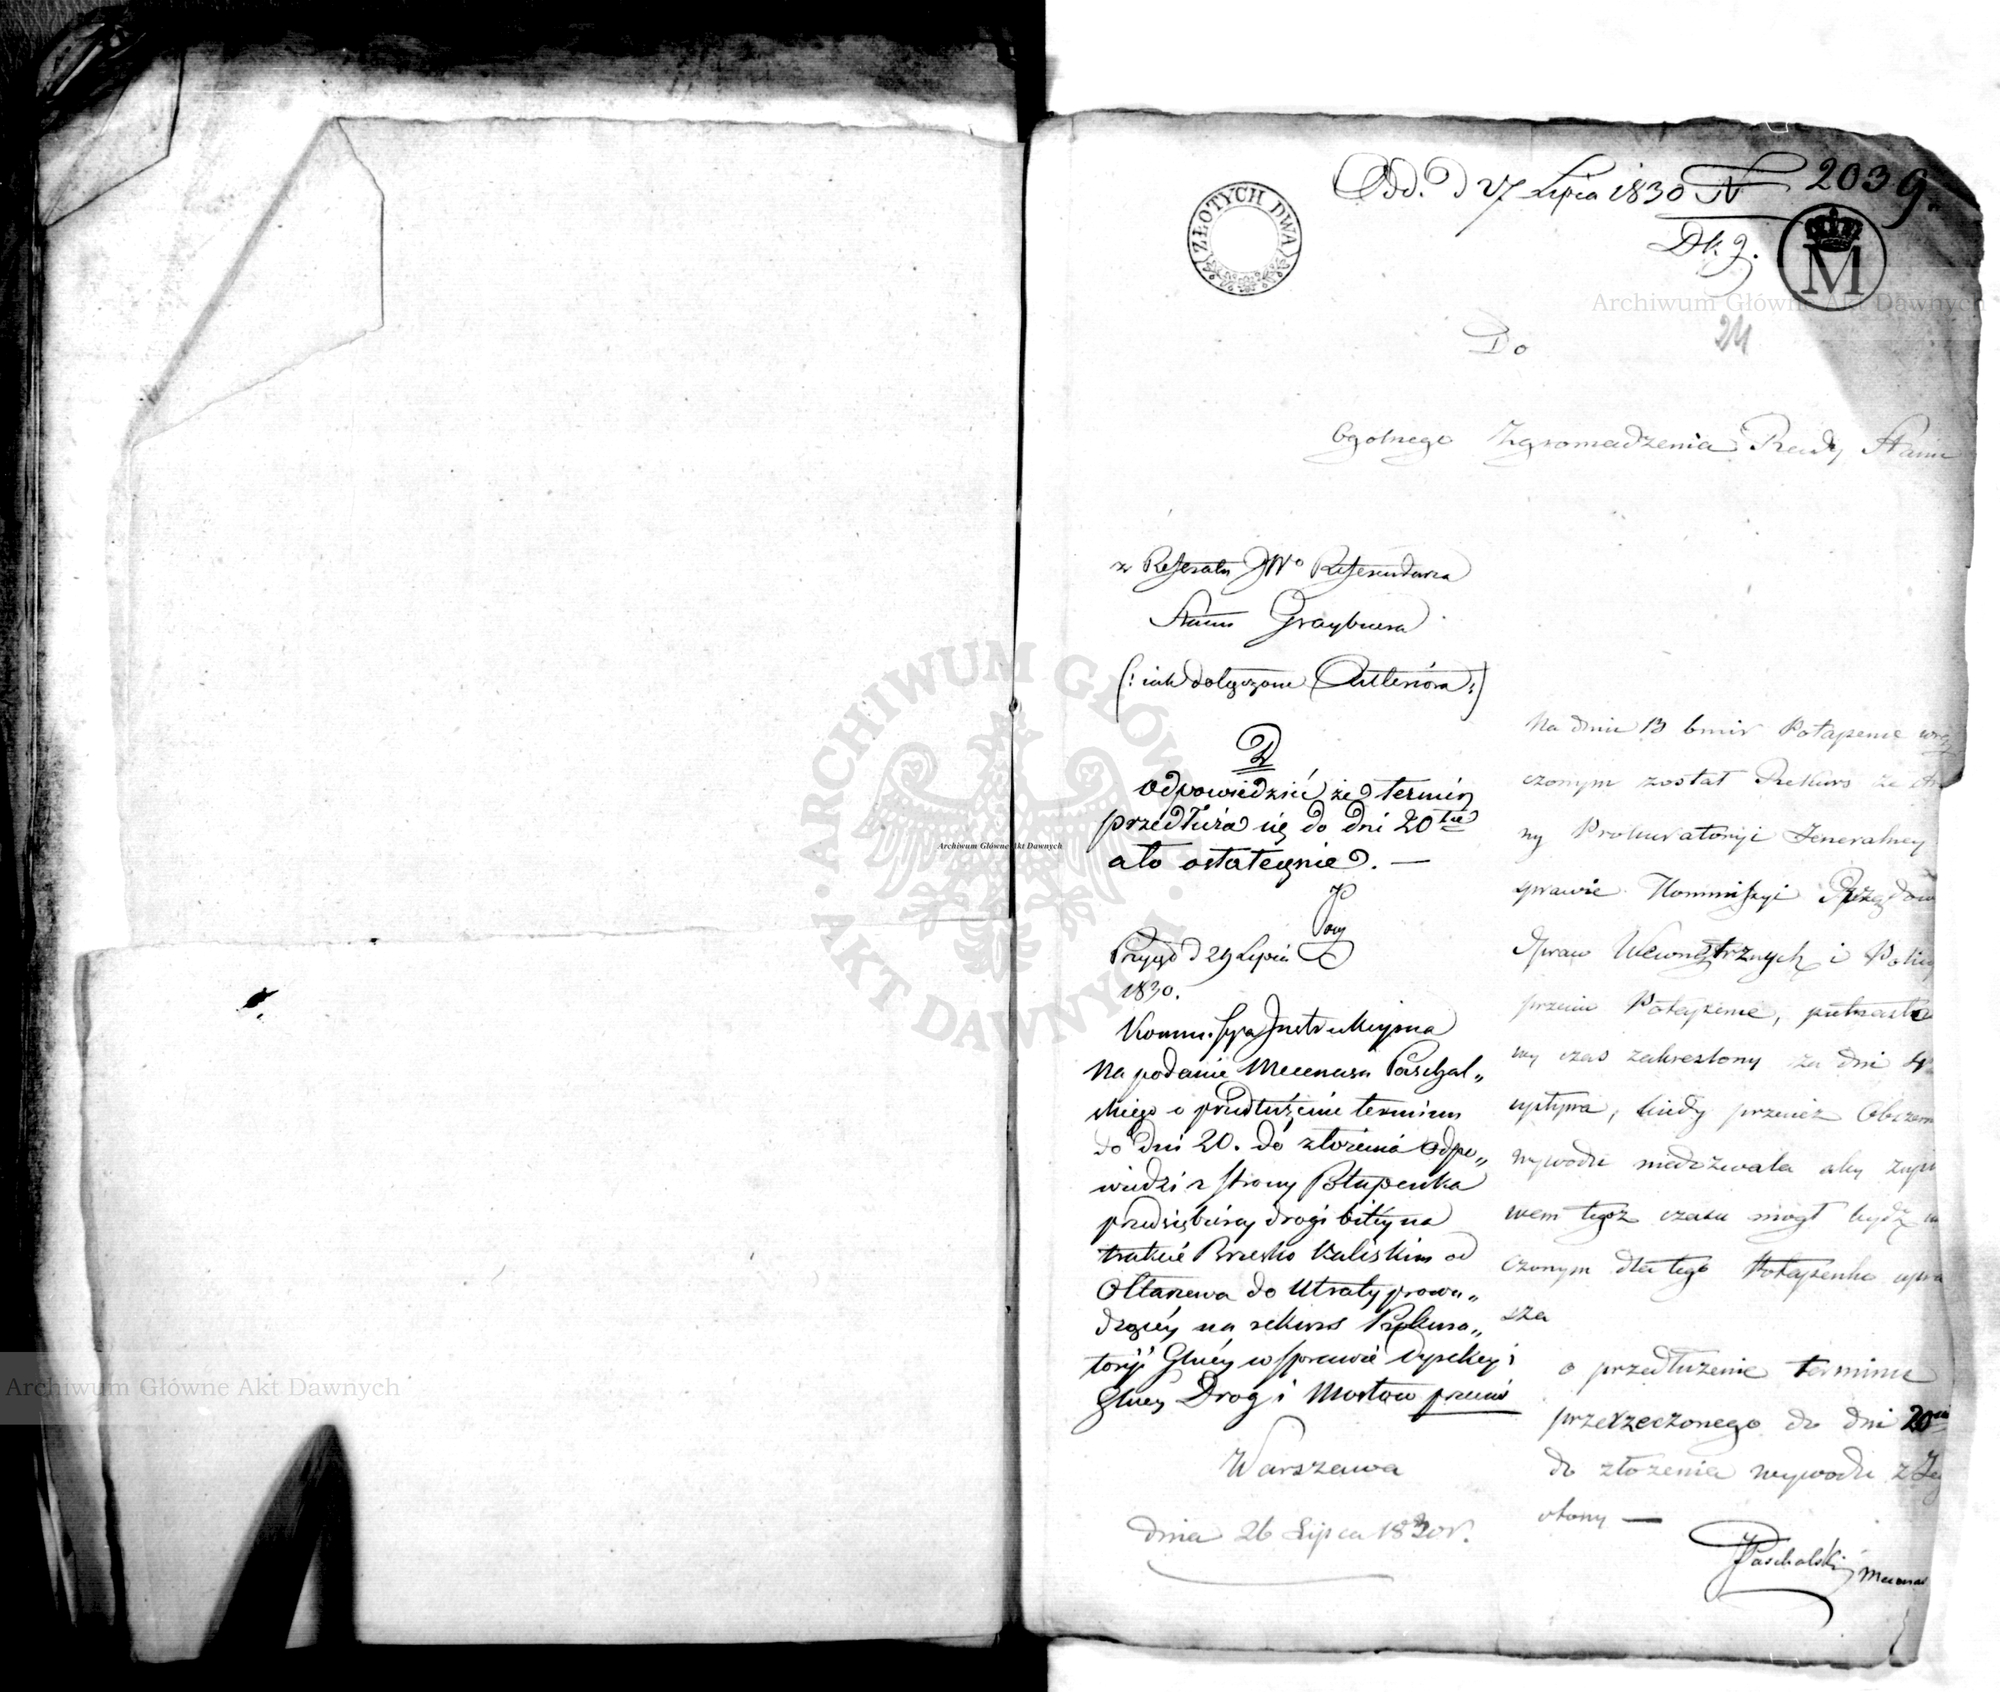 Odd. d 27 Lipca 1830 N 2039.
Dk. g.
ZŁOTYCH DWA
M
24
Do
Ogolnego Zgromadzenia Rady Stanu
z Referatu JWo Referendarza
Stanu Graybnera
(: iak dołączone :)
D
odpowiedzieć że termin
przedłuża się do dni 20tu
a to ostatecznie. —
Przyięto d 29 Lipca
1830.
Kommissya Instrukcyjna
Na podanie Mecenasa Paschal„
skiego o przedłużenie terminu
do dni 20. do złożenia odpo„
wiedzi z strony Potapenka
przedsiębiercy drogi bitey na
trakcie Brzesko Kaliskim od
Ołtarzewa do Utraty prowa„
dzącey na rekurs Prokura„
toryi Główney w sprawie Dyrekcyi
Głney Drog i Mostow przeciw
Warszawa
dnia 26 Lipca 1830 r.
Na dniu 13 b m i r Potapence wrę
czonym został Rekurs ze stro
ny Prokuratoryi Jeneralney
sprawie Kommissyi Rządow
Spraw Wewnętrznych i Policy
przeciw Potapence,
czas zakreslony za dni
upływa, kiedy przecież Obszern
wywodu niedozwala aby
wem tegoż czasu mogł bydź
czonym dla tego Potapenko upra
sza
o przedłużenie terminu
przerzeczonego do dni 20tu
do złożenia wywodu z Jeg
strony —
Paschalski Mecenas
Archiwum Główne Akt Dawnych
ARCHIWUM GŁÓWNE AKT DAWNYCH
Archiwum Główne Akt Dawnych
Archiwum Główne Akt Dawnych